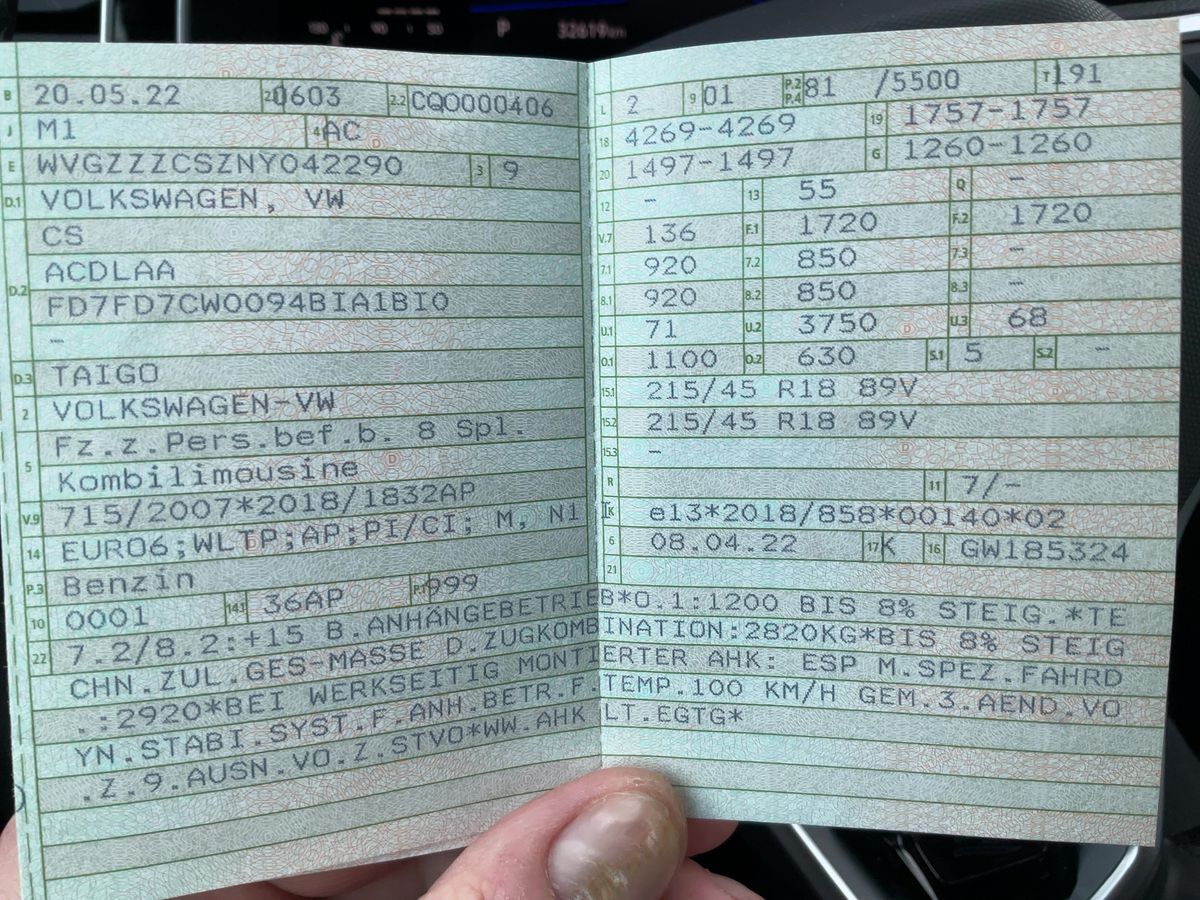 P 32619km
B 20.05.22 2.1 0603 2.2 CQ0000406
J M1 4 AC
E WVGZZZCSZNY042290 3 9
D.1 VOLKSWAGEN, VW
CS
D.2 ACDLAA
FD7FD7CW0094BIA1BI0
–
D.3 TAIGO
2 VOLKSWAGEN-VW
5 Fz.z.Pers.bef.b. 8 Spl.
Kombilimousine
V.9 715/2007*2018/1832AP
14 EURO6;WLTP;AP;PI/CI; M, N1 I
P.3 Benzin
10 0001 14.1 36AP P.1 999
L 2 9 01 P.2 P.4 81 /5500 T 191
18 4269-4269 19 1757-1757
20 1497-1497 G 1260-1260
12 – 13 55 Q –
V.7 136 F.1 1720 F.2 1720
7.1 920 7.2 850 7.3 –
8.1 920 8.2 850 8.3 –
U.1 71 U.2 3750 U.3 68
O.1 1100 O.2 630 S.1 5 S.2 –
15.1 215/45 R18 89V
15.2 215/45 R18 89V
15.3 –
R 11 7/-
K e13*2018/858*00140*02
6 08.04.22 17 K 16 GW185324
21
22 7.2/8.2:+15 B.ANHÄNGEBETRIEB*O.1:1200 BIS 8% STEIG.*TE
CHN.ZUL.GES-MASSE D.ZUGKOMBINATION:2820KG*BIS 8% STEIG
.:2920*BEI WERKSEITIG MONTIERTER AHK: ESP M.SPEZ.FAHRD
YN.STABI.SYST.F.ANH.BETR.F.TEMP.100 KM/H GEM.3.AEND.VO
.Z.9.AUSN.VO.Z.STVO*WW.AHK LT.EGTG*